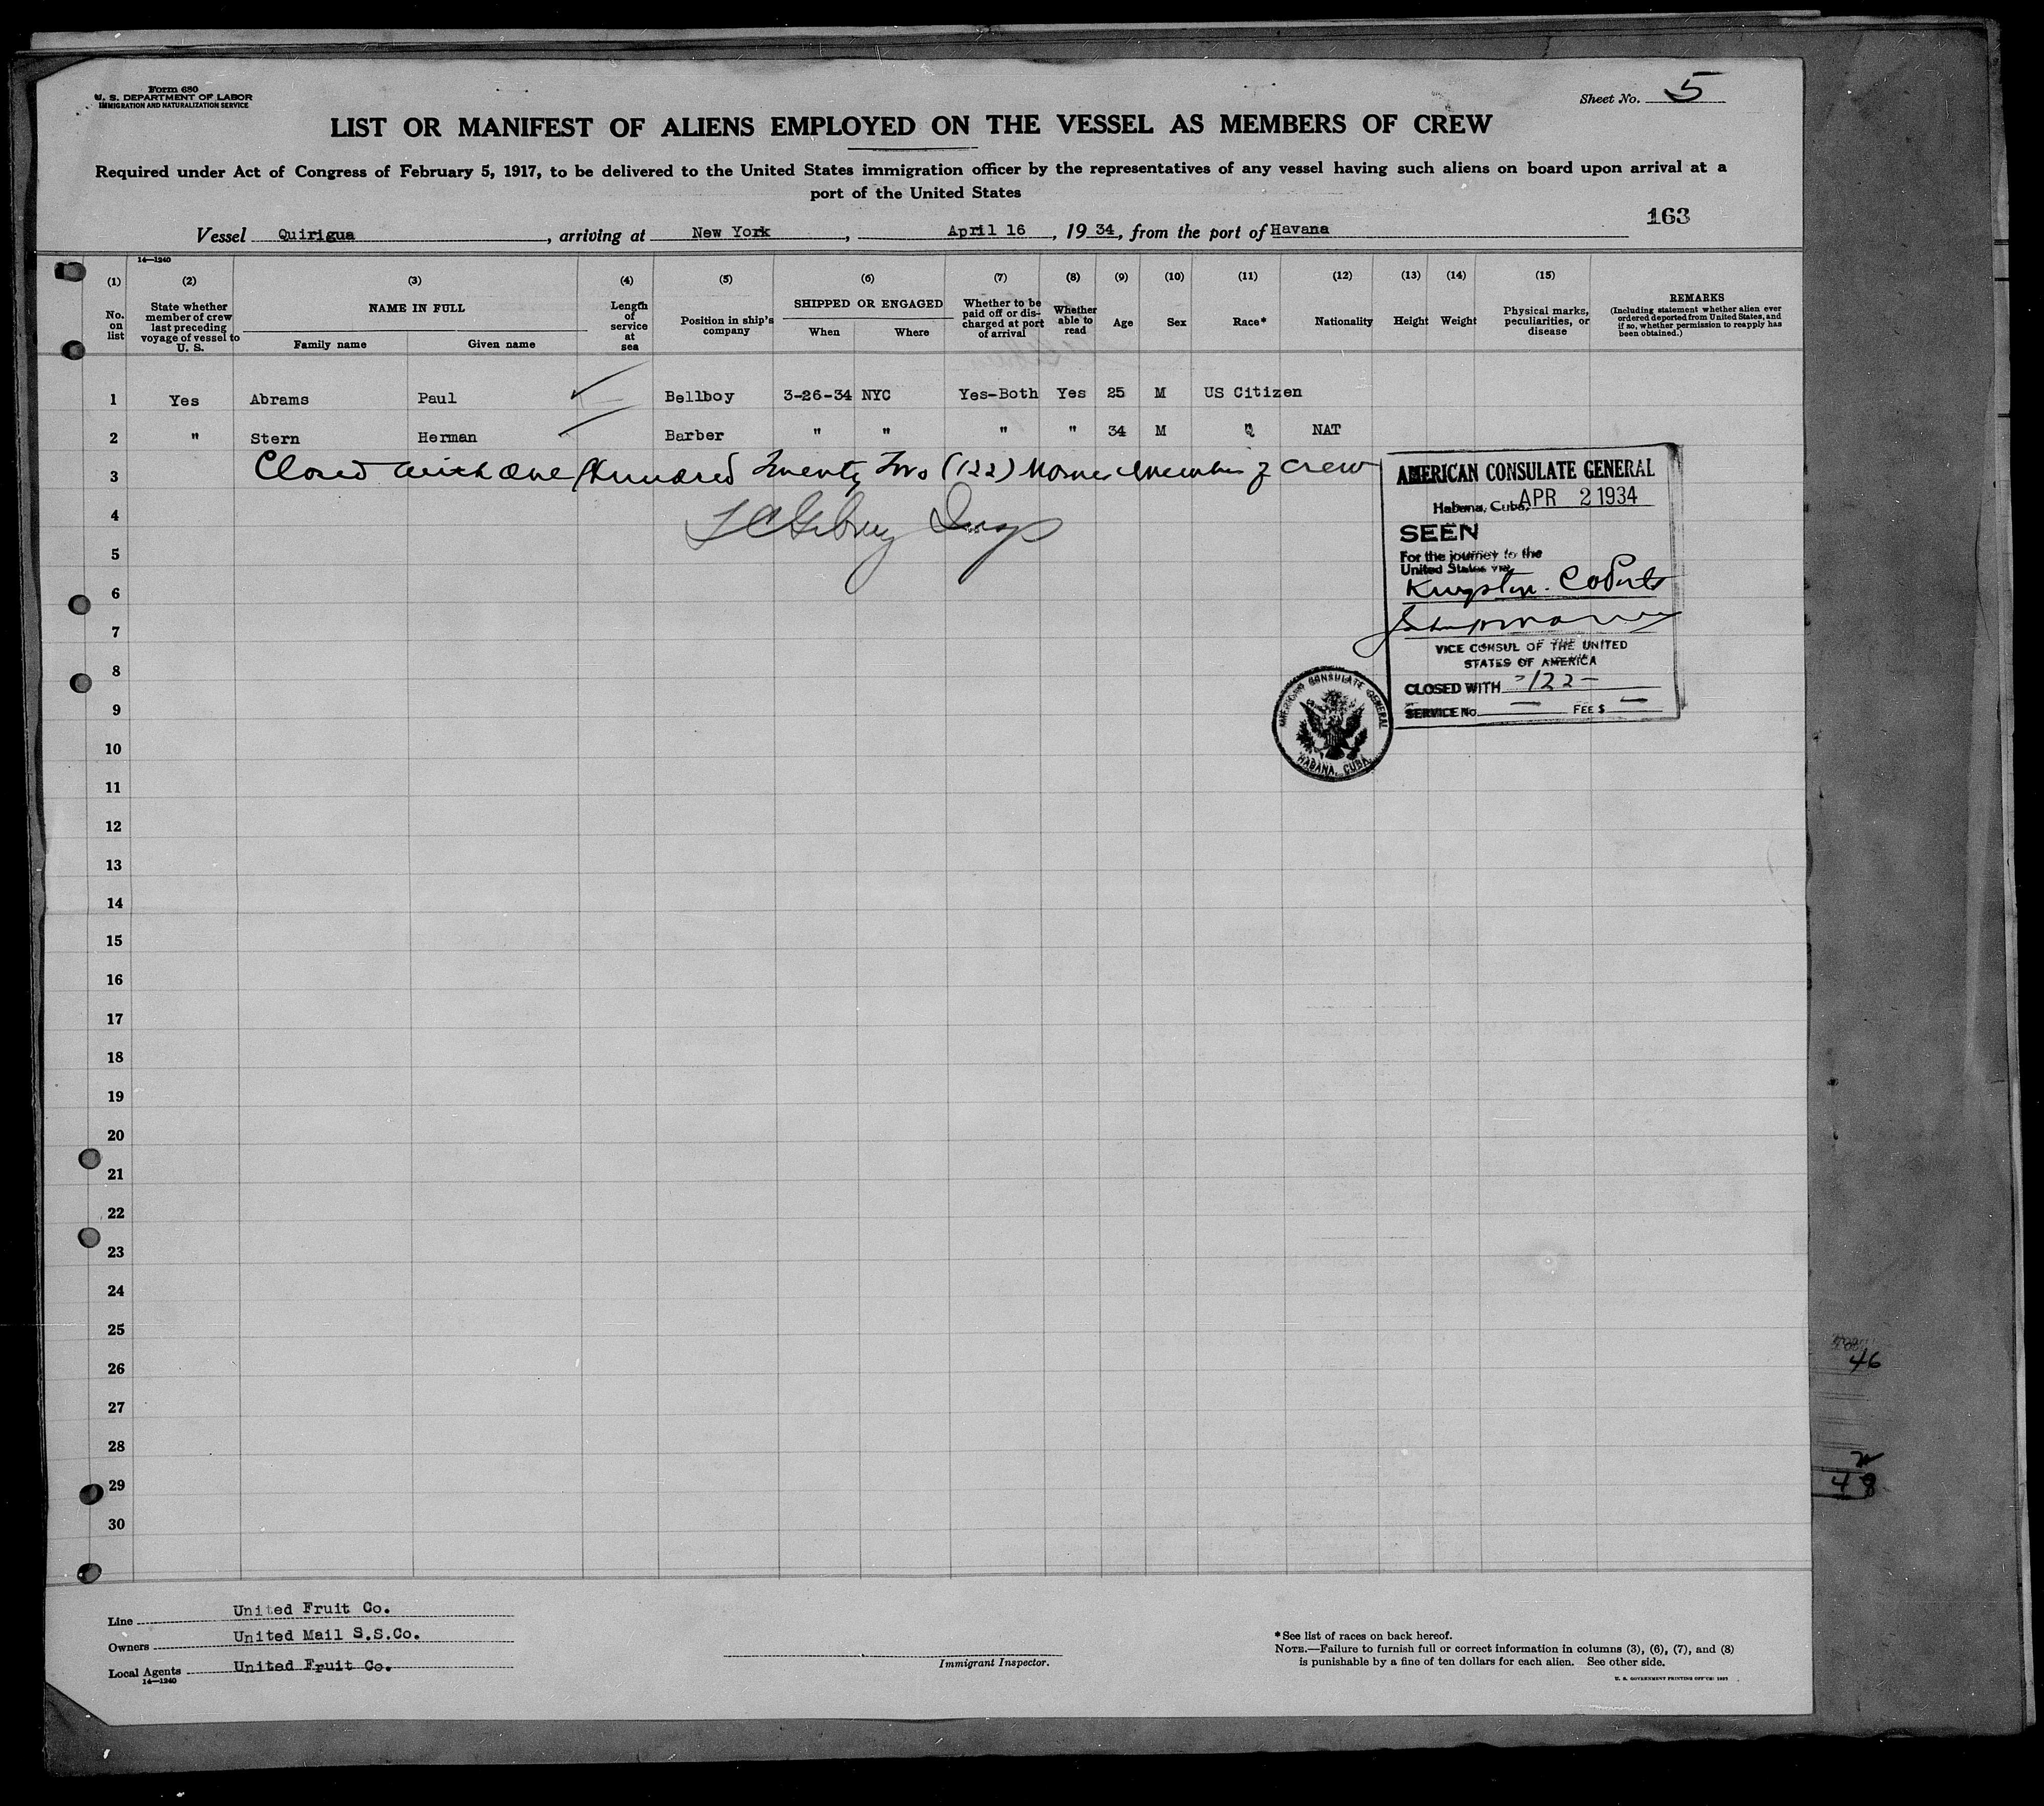 Form 680
U. S. DEPARTMENT OF LABOR
IMMIGRATION AND NATURALIZATION SERVICE
Sheet No. 5
LIST OR MANIFEST OF ALIENS EMPLOYED ON THE VESSEL AS MEMBERS OF CREW
Required under Act of Congress of February 5, 1917, to be delivered to the United States immigration officer by the representatives of any vessel having such aliens on board upon arrival at a
port of the United States
163
Vessel Quirigua, arriving at New York, April 16, 1934, from the port of Havana
14—1240
(1) (2) (3) (4) (5) (6) (7) (8) (9) (10) (11) (12) (13) (14) (15)
No. on list
State whether member of crew last preceding voyage of vessel to U. S.
NAME IN FULL
Family name Given name
Length of service at sea
Position in ship's company
SHIPPED OR ENGAGED
When Where
Whether to be paid off or discharged at port of arrival
Whether able to read
Age Sex Race* Nationality Height Weight
Physical marks, peculiarities, or disease
REMARKS
(Including statement whether alien ever ordered deported from United States, and if so, whether permission to reapply has been obtained.)
1 Yes Abrams Paul Bellboy 3-26-34 NYC Yes-Both Yes 25 M US Citizen
2 " Stern Herman Barber " " " " 34 M " NAT
3 Closed with one Hundred Twenty Two (122) Names members of crew
4
5
6
7
8
9
10
11
12
13
14
15
16
17
18
19
20
21
22
23
24
25
26
27
28
29
30
AMERICAN CONSULATE GENERAL
Habana, Cuba, APR 2 1934
SEEN
For the journey to the
United States via
Kingston.
VICE CONSUL OF THE UNITED
STATES OF AMERICA
CLOSED WITH -122-
SERVICE No. — FEE $ —
AMERICAN CONSULATE GENERAL
HABANA, CUBA
46
48
Line United Fruit Co.
Owners United Mail S.S.Co.
Local Agents United Fruit Co.
14—1240
Immigrant Inspector.
*See list of races on back hereof.
NOTE.—Failure to furnish full or correct information in columns (3), (6), (7), and (8)
is punishable by a fine of ten dollars for each alien. See other side.